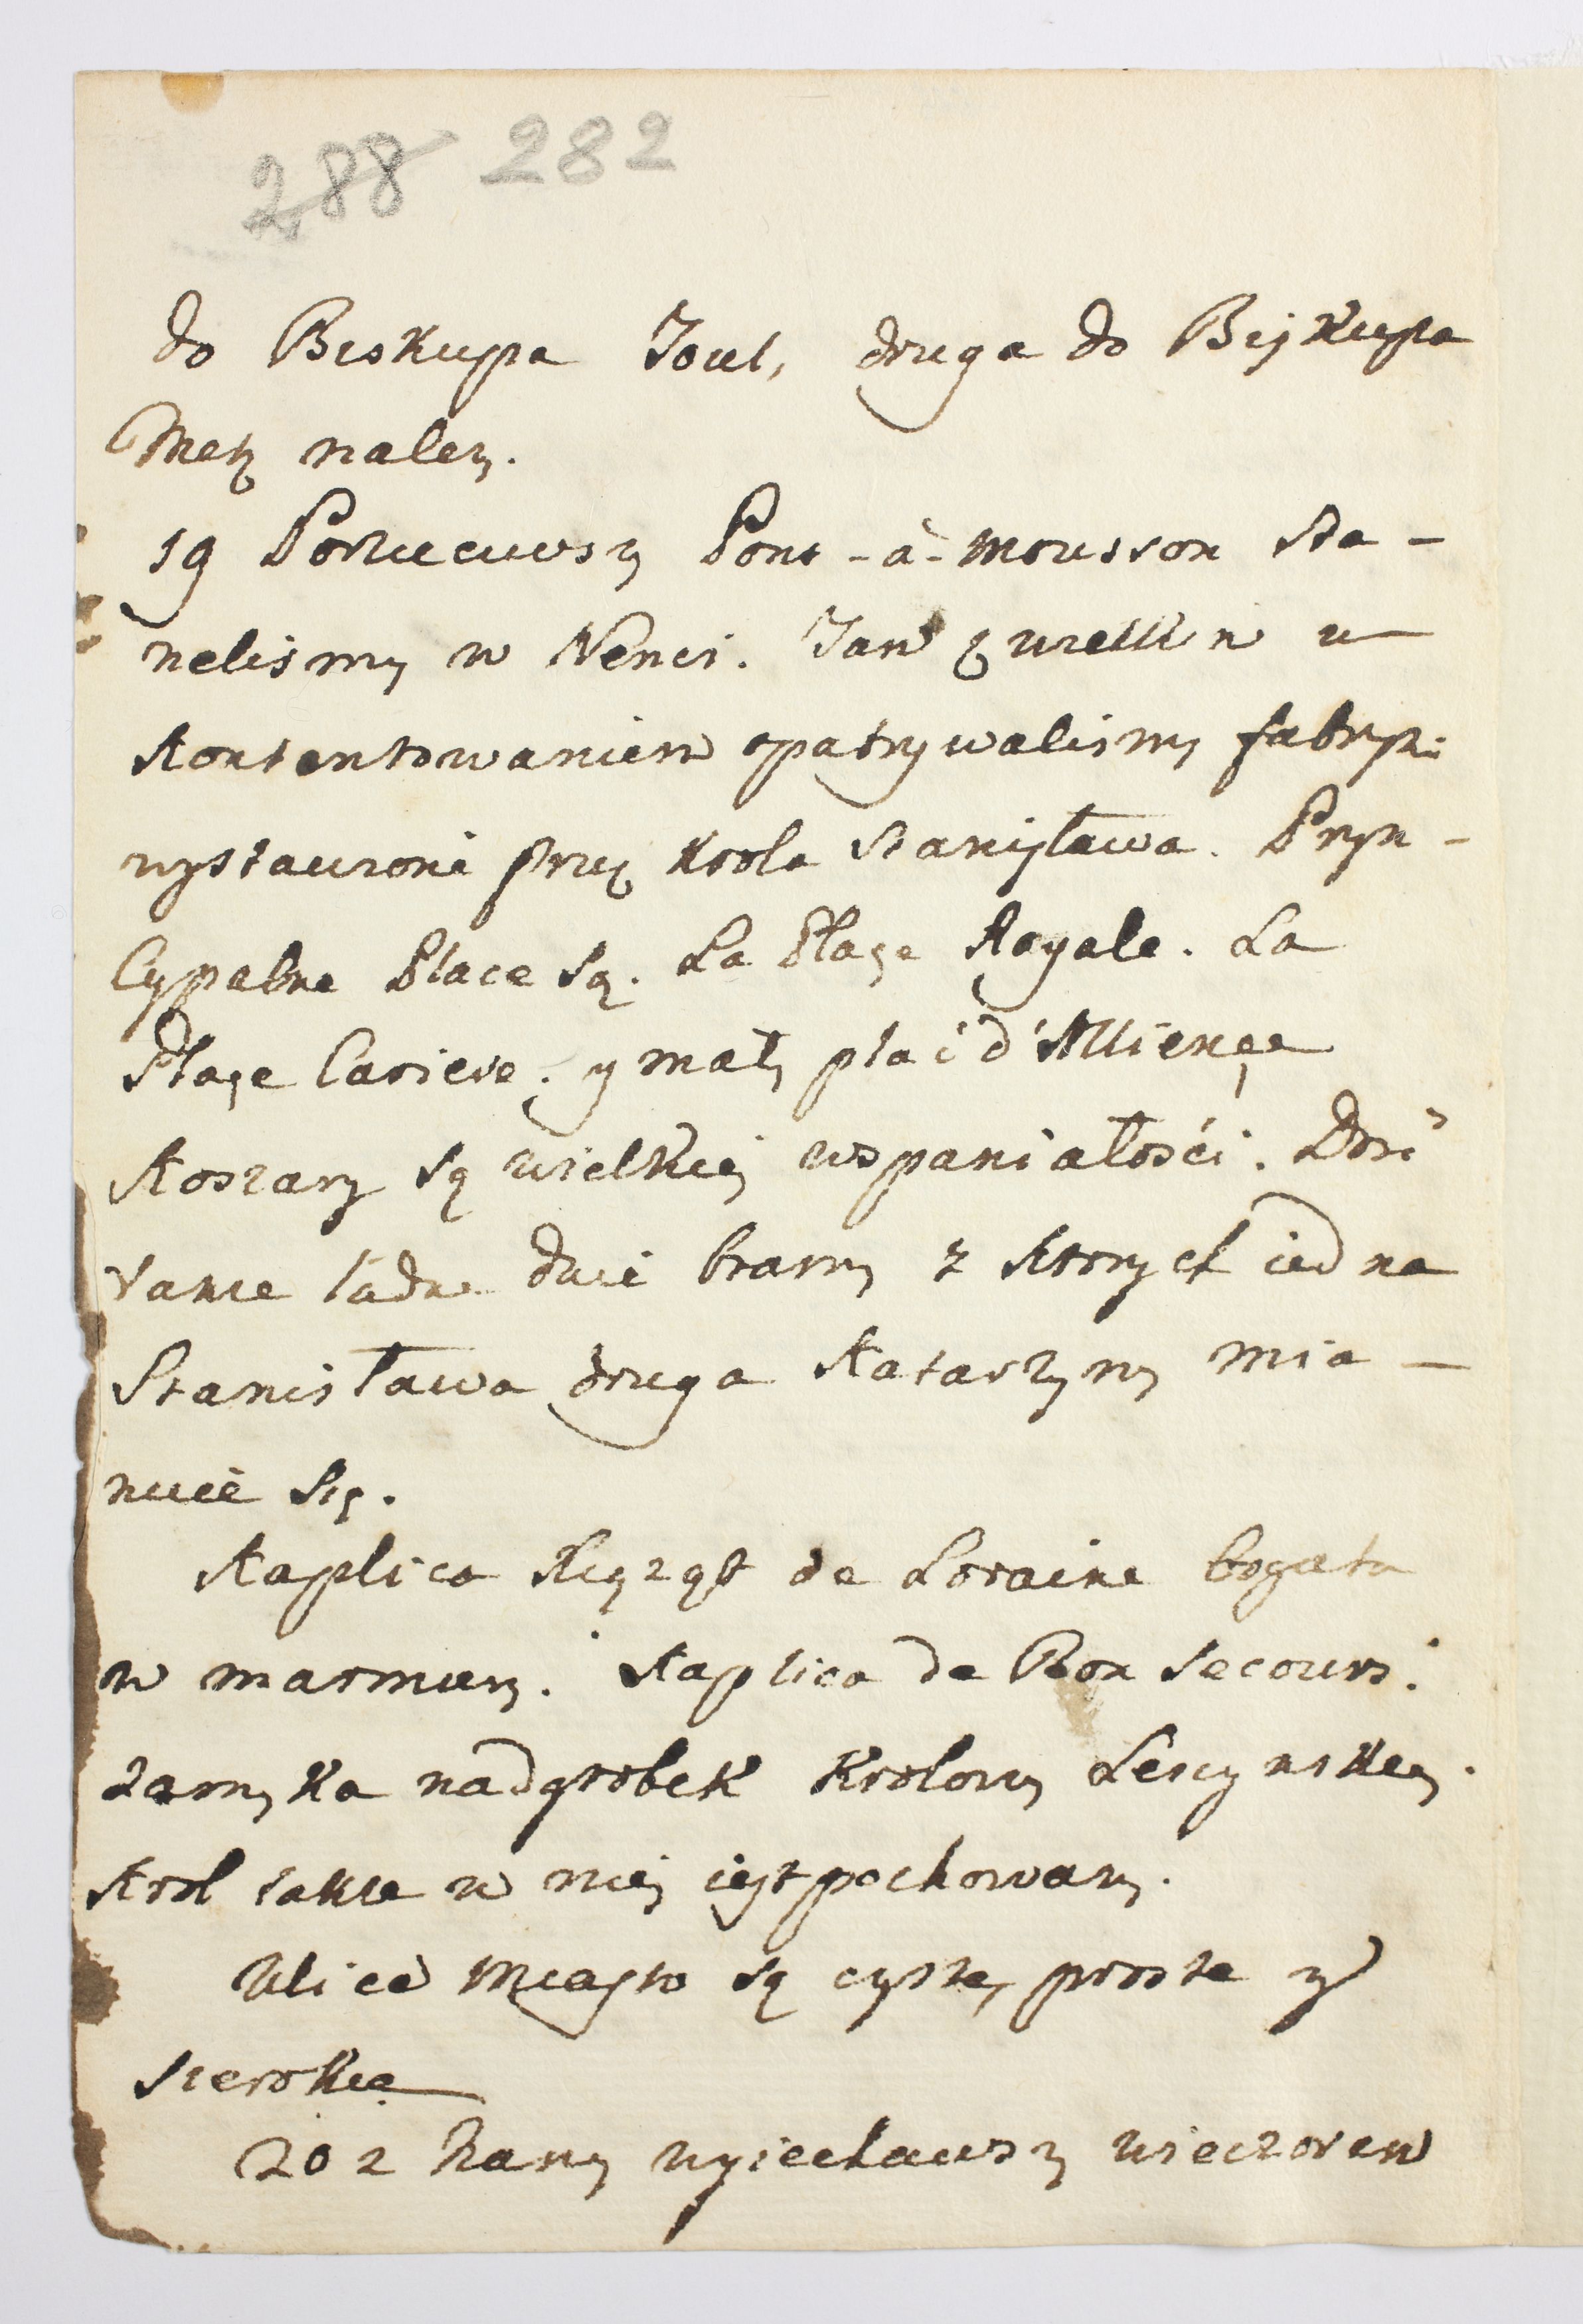 288 282
do Biskupa Toul, druga do Bijkupa
Metz nalezy.
19 Porzuciwszy Pont-à-mousson sta-
nelismy w Nenci. Tam z wielkim u
kontentowaniem opatrywalismy fabryki
wystawione przez Krola Stanisława. Pryn-
cypalne Place są. La Plaçe Royale. La
Plaçe Cariere. y mały plac d'Alliençe
Koszary są wielkiey wspaniałości. Dosć
takze ładne dwie bramy z ktorych iedna
Stanisława druga Katarzyny mia-
nuie się.
Kaplica Xiążąt de Loraine bogata
w marmury. Kaplica de Bon Secours.
zamyka nadgrobek Krolowy Lescynskiey.
Krol takze w niey iest pochowany.
Ulice Miasta są czyste, proste y
szerokie
20 z Rany wyiechawszy wieczorem